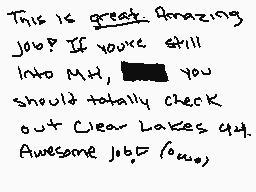 This is great Amazing
job! If you're still
into MH, you
should totally check
out Clear Lakes 44.
Awesome job! (owo)